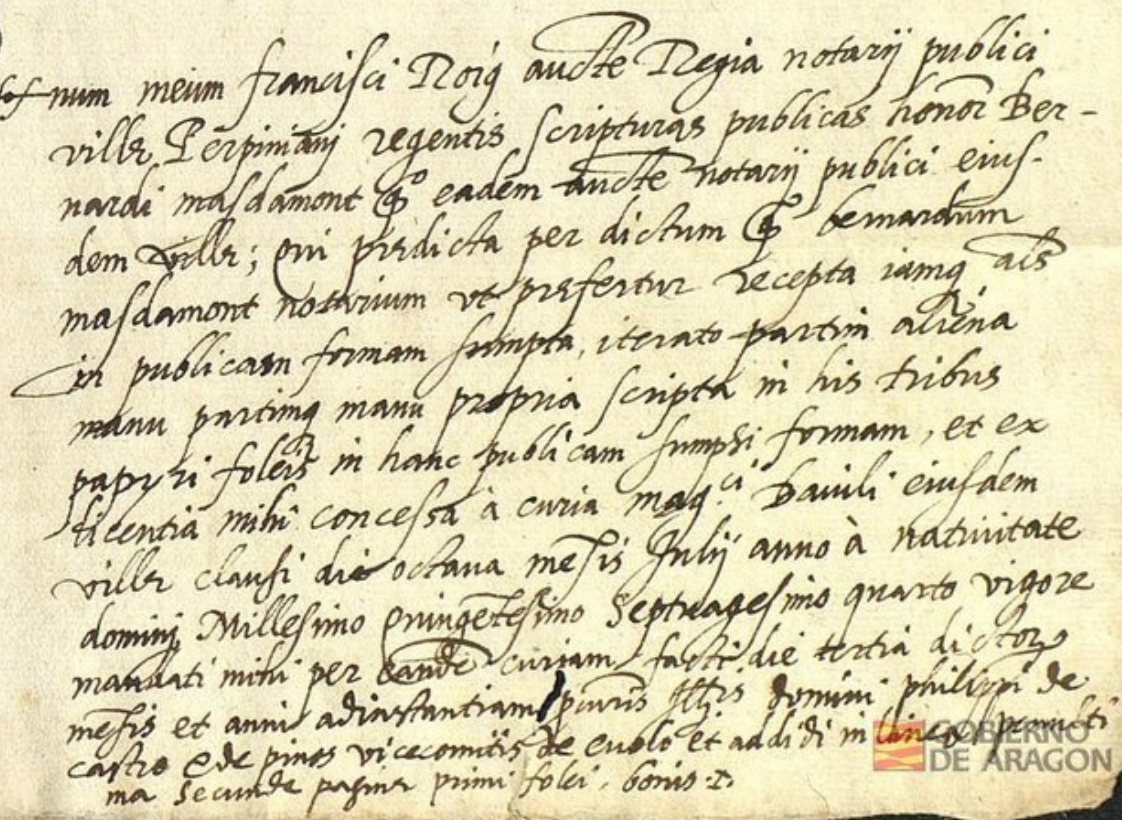 num meum francisci Roig aucte Regia notarij publici
ville Perpiniani regentis scripturas publicas honor Ber-
nardi masdamont qo eadem aucte notarij publici eius-
dem ville; qui predicta per dictum q bernardum
masdamont notarium vt prefertur recepta iamq als
in publicam formam sumpta, iterato partim aliena
manu partimq manu propria scripta in his tribus
papyri foleis in hanc publicam sumpsi formam, et ex
licentia mihi concessa à curia magci Baiuli eiusdem
ville clausi die octaua mesis Julij anno à natiuitate
domini Millesimo quingetesimo Septuagesimo quarto vigore
mandati mihi per eande curiam facti die tertia dictor
mesis et anni ad instantiam pcuris domini philippi de
castro e de pinos vicecomitis de euolo et addidi in linea penulti
ma secunde pagine primi folei. bonis.
GOBIERNO
DE ARAGON